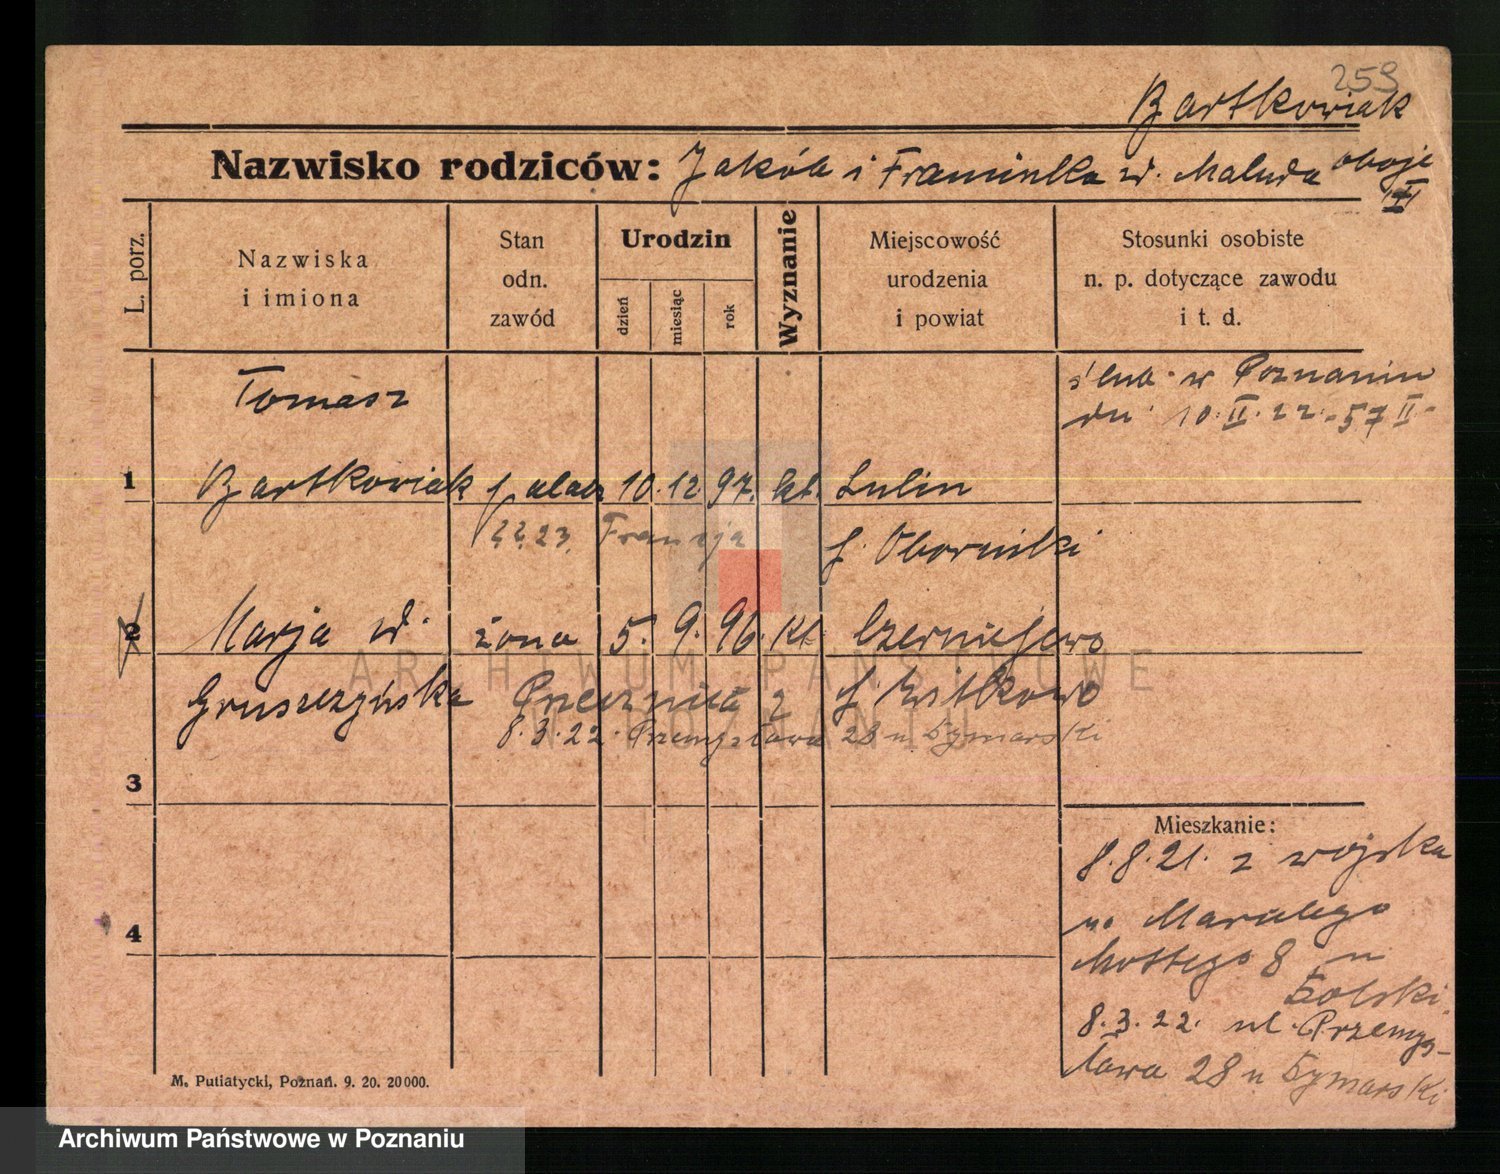 259
Bartkowiak
Nazwisko rodziców: Jakób i Franciszka zd. Maluda oboje
L. porz.
Nazwiska
i imiona
Stan
odn.
zawód
Urodzin
dzień
miesiąc
rok
Wyznanie
Miejscowość
urodzenia
i powiat
Stosunki osobiste
n. p. dotyczące zawodu
i t. d.
Tomasz
ślub w Poznaniu
dn 10.II.22.-57 II-
1 Bartkowiak 10. 12. 97. kt. Lulin
23. Francja
Oborniki
2 Marja zd. żona 5. 9. 96. kt. Czerniejewo
Gruszczyńska Witkowo
8.3.22. Przemysława 28 u Szymarski
3
4
Mieszkanie:
8.8.21. z wojska
Marcelego
Mottego 8 u
Solski.
8.3.22. ul. Przemy-
sława 28 u Szymarski
M. Putiatycki, Poznań. 9. 20. 20000.
ARCHIWUM PAŃSTWOWE
W POZNANIU
Archiwum Państwowe w Poznaniu